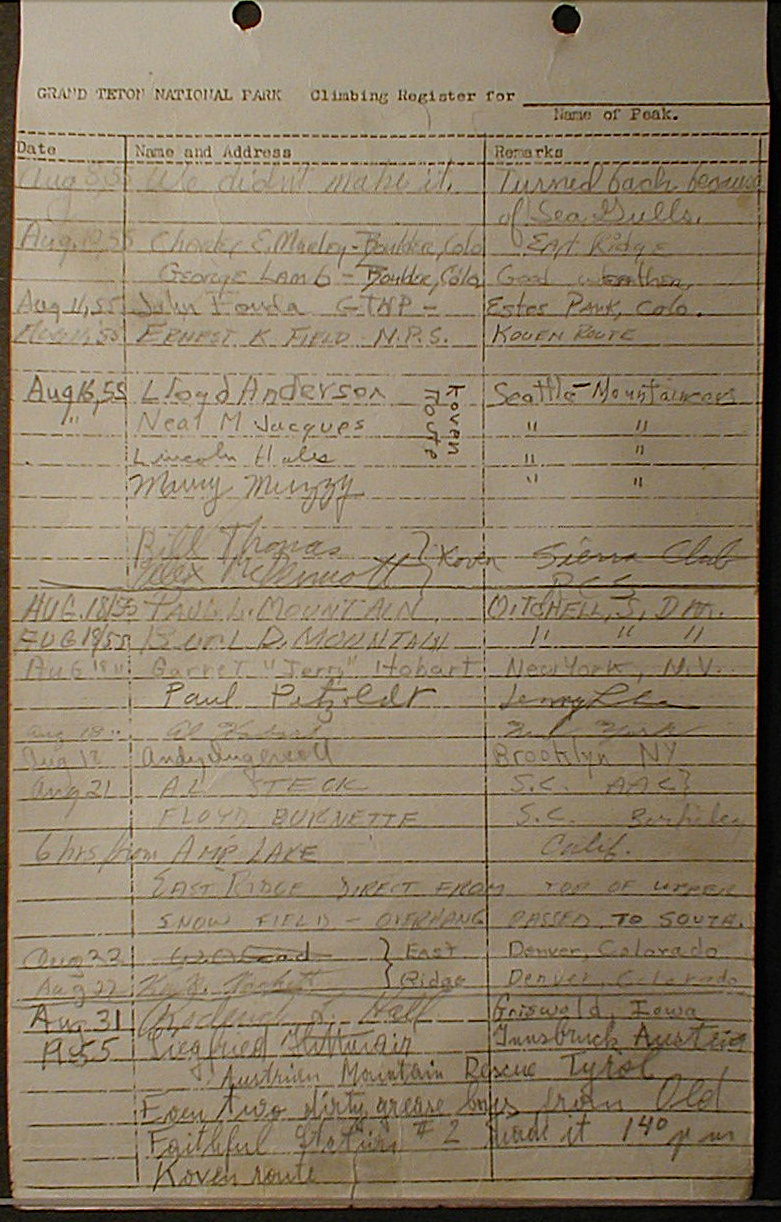 GRAND TETON NATIONAL PARK Climbing Register for
Name of Peak.
Date Name and Address Remarks
Aug 8, 55 We didn't make it. Turned back because
of Sea Gulls.
Aug. 10, 55 Charles E. - Boulder, Colo East Ridge
George Lamb - Boulder, Colo Good weather,
Aug 11, 55 John Fonda GTNP - Estes Park, Colo.
ERNEST K FIELD N.P.S. KOVEN ROUTE
Aug 16, 55 Lloyd Anderson Seattle - Mountaineers
" Neal M Jacques " "
Koven Route
Lincoln Hales " "
Maury Muzzy " "
Bill Thomas
Alex McDermott } Koven Sierra Club
R C S
AUG. 18/55 PAUL L. MOUNTAIN MITCHELL, S, DAK.
AUG 18/55 D. MOUNTAIN " " "
Aug 18 " Garret "Jerry" Hobart New York, N.Y.
Paul Petzoldt Jenny Lake
Aug 18 " Al New York
Aug 18 Andy Ingersoll Brooklyn NY
Aug 21 AL STECK S.C. AAC }
FLOYD BURNETTE S.C. Berkeley
6 hrs from AMP. LAKE Calif.
EAST RIDGE DIRECT FROM TOP OF UPPER
SNOW FIELD - OVERHANG PASSED TO SOUTH.
Aug 22 } East Denver, Colorado
Aug 22 { Ridge Denver, Colorado
Aug 31 Roderick L. Hall Griswold, Iowa
1955 Siegfried Innsbruck Austria
Austrian Mountain Rescue Tyrol
Even two dirty grease boys from Old
Faithful Station # 2 made it 1 40 p m
Koven route